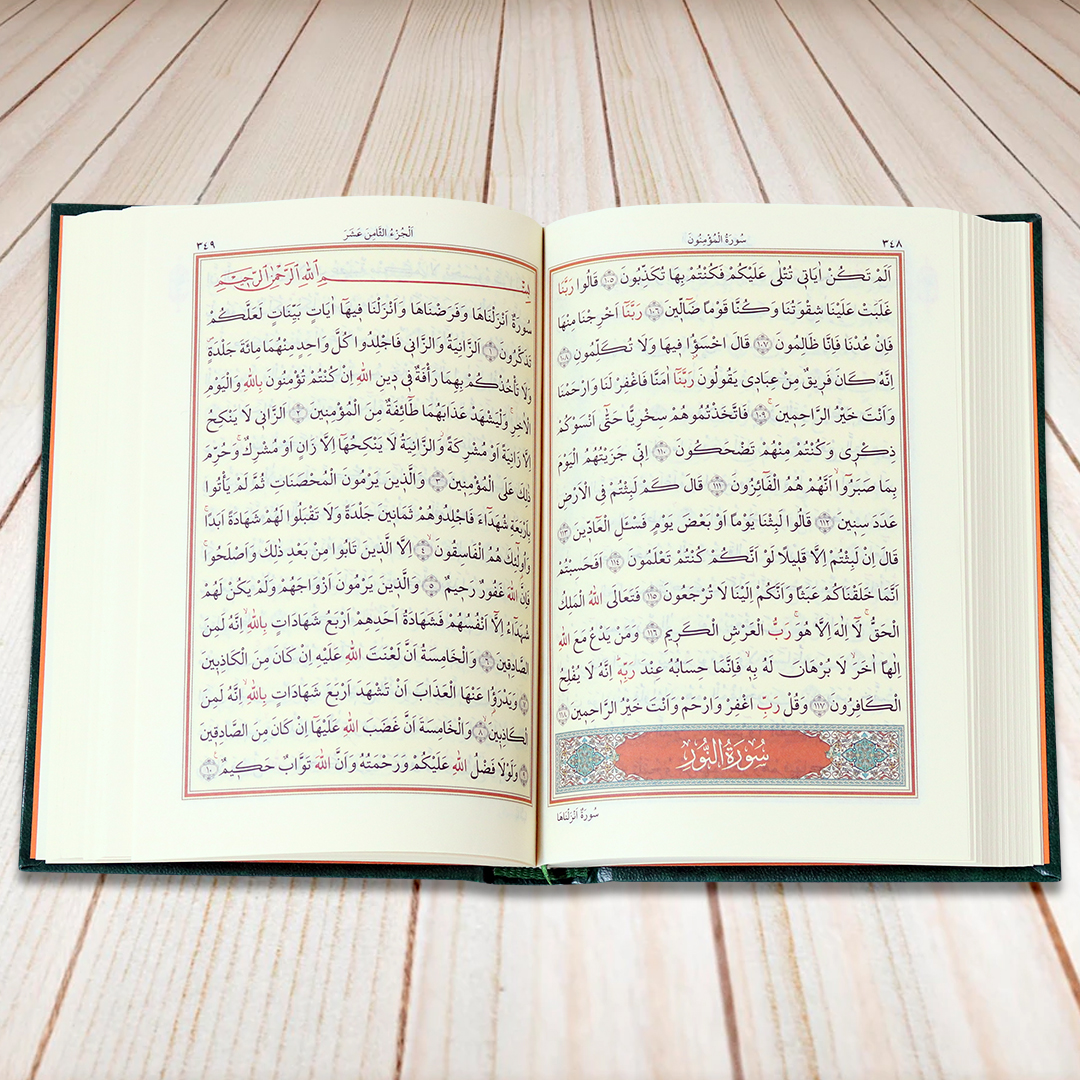 سُورَةُ الْمُؤْمِنُونَ
٣٤٨
اَلَمْ تَكُنْ اٰيَاتٖي تُتْلٰى عَلَيْكُمْ فَكُنْتُمْ بِهَا تُكَذِّبُونَ ﴿١٠٥﴾ قَالُوا رَبَّنَا
غَلَبَتْ عَلَيْنَا شِقْوَتُنَا وَكُنَّا قَوْمًا ضَٓالّٖينَ ﴿١٠٦﴾ رَبَّنَٓا اَخْرِجْنَا مِنْهَا
فَاِنْ عُدْنَا فَاِنَّا ظَالِمُونَ ﴿١٠٧﴾ قَالَ اخْسَؤُ۫ا فٖيهَا وَلَا تُكَلِّمُونِ ﴿١٠٨﴾
اِنَّهُ كَانَ فَرٖيقٌ مِنْ عِبَادٖي يَقُولُونَ رَبَّنَٓا اٰمَنَّا فَاغْفِرْ لَنَا وَارْحَمْنَا
وَاَنْتَ خَيْرُ الرَّاحِمٖينَ ﴿١٠٩﴾ فَاتَّخَذْتُمُوهُمْ سِخْرِيًّا حَتّٰٓى اَنْسَوْكُمْ
ذِكْرٖي وَكُنْتُمْ مِنْهُمْ تَضْحَكُونَ ﴿١١٠﴾ اِنّٖي جَزَيْتُهُمُ الْيَوْمَ
بِمَا صَبَرُٓوا اَنَّهُمْ هُمُ الْفَٓائِزُونَ ﴿١١١﴾ قَالَ كَمْ لَبِثْتُمْ فِي الْاَرْضِ
عَدَدَ سِنٖينَ ﴿١١٢﴾ قَالُوا لَبِثْنَا يَوْمًا اَوْ بَعْضَ يَوْمٍ فَسْـَٔلِ الْعَٓادّٖينَ ﴿١١٣﴾
قَالَ اِنْ لَبِثْتُمْ اِلَّا قَلٖيلًا لَوْ اَنَّكُمْ كُنْتُمْ تَعْلَمُونَ ﴿١١٤﴾ اَفَحَسِبْتُمْ
اَنَّمَا خَلَقْنَاكُمْ عَبَثًا وَاَنَّكُمْ اِلَيْنَا لَا تُرْجَعُونَ ﴿١١٥﴾ فَتَعَالَى اللّٰهُ الْمَلِكُ
الْحَقُّۚ لَٓا اِلٰهَ اِلَّا هُوَۚ رَبُّ الْعَرْشِ الْكَرٖيمِ ﴿١١٦﴾ وَمَنْ يَدْعُ مَعَ اللّٰهِ
اِلٰهًا اٰخَرَۙ لَا بُرْهَانَ لَهُ بِهٖۙ فَاِنَّمَا حِسَابُهُ عِنْدَ رَبِّهٖۜ اِنَّهُ لَا يُفْلِحُ
الْكَافِرُونَ ﴿١١٧﴾ وَقُلْ رَبِّ اغْفِرْ وَارْحَمْ وَاَنْتَ خَيْرُ الرَّاحِمٖينَ ﴿١١٨﴾
سُورَةُ النُّورِ
سُورَةٌ اَنْزَلْنَاهَا
اَلْجُزْءُ الثَّامِنَ عَشَرَ
٣٤٩
بِسْمِ اللّٰهِ الرَّحْمٰنِ الرَّحٖيمِ
سُورَةٌ اَنْزَلْنَاهَا وَفَرَضْنَاهَا وَاَنْزَلْنَا فٖيهَٓا اٰيَاتٍ بَيِّنَاتٍ لَعَلَّكُمْ
تَذَكَّرُونَ ﴿١﴾ اَلزَّانِيَةُ وَالزَّانٖي فَاجْلِدُوا كُلَّ وَاحِدٍ مِنْهُمَا مِائَةَ جَلْدَةٍۖ
وَلَا تَأْخُذْكُمْ بِهِمَا رَأْفَةٌ فٖي دٖينِ اللّٰهِ اِنْ كُنْتُمْ تُؤْمِنُونَ بِاللّٰهِ وَالْيَوْمِ
الْاٰخِرِۚ وَلْيَشْهَدْ عَذَابَهُمَا طَٓائِفَةٌ مِنَ الْمُؤْمِنٖينَ ﴿٢﴾ اَلزَّانٖي لَا يَنْكِحُ
اِلَّا زَانِيَةً اَوْ مُشْرِكَةًۘ وَالزَّانِيَةُ لَا يَنْكِحُهَٓا اِلَّا زَانٍ اَوْ مُشْرِكٌۚ وَحُرِّمَ
ذٰلِكَ عَلَى الْمُؤْمِنٖينَ ﴿٣﴾ وَالَّذٖينَ يَرْمُونَ الْمُحْصَنَاتِ ثُمَّ لَمْ يَأْتُوا
بِاَرْبَعَةِ شُهَدَٓاءَ فَاجْلِدُوهُمْ ثَمَانٖينَ جَلْدَةً وَلَا تَقْبَلُوا لَهُمْ شَهَادَةً اَبَدًاۚ
وَاُو۬لٰٓئِكَ هُمُ الْفَاسِقُونَۙ ﴿٤﴾ اِلَّا الَّذٖينَ تَابُوا مِنْ بَعْدِ ذٰلِكَ وَاَصْلَحُواۚ
فَاِنَّ اللّٰهَ غَفُورٌ رَحٖيمٌ ﴿٥﴾ وَالَّذٖينَ يَرْمُونَ اَزْوَاجَهُمْ وَلَمْ يَكُنْ لَهُمْ
شُهَدَٓاءُ اِلَّٓا اَنْفُسُهُمْ فَشَهَادَةُ اَحَدِهِمْ اَرْبَعُ شَهَادَاتٍ بِاللّٰهِۙ اِنَّهُ لَمِنَ
الصَّادِقٖينَ ﴿٦﴾ وَالْخَامِسَةُ اَنَّ لَعْنَتَ اللّٰهِ عَلَيْهِ اِنْ كَانَ مِنَ الْكَاذِبٖينَ
﴿٧﴾ وَيَدْرَؤُ۬ا عَنْهَا الْعَذَابَ اَنْ تَشْهَدَ اَرْبَعَ شَهَادَاتٍ بِاللّٰهِۙ اِنَّهُ لَمِنَ
الْكَاذِبٖينَۙ ﴿٨﴾ وَالْخَامِسَةَ اَنَّ غَضَبَ اللّٰهِ عَلَيْهَٓا اِنْ كَانَ مِنَ الصَّادِقٖينَ
﴿٩﴾ وَلَوْلَا فَضْلُ اللّٰهِ عَلَيْكُمْ وَرَحْمَتُهُ وَاَنَّ اللّٰهَ تَوَّابٌ حَكٖيمٌ ﴿١٠﴾